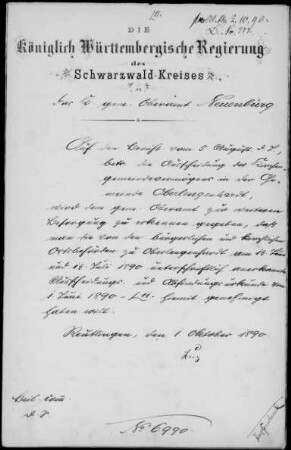 III.
2.10.90.
DIE
Königlich Württembergische Regierung
des
Schwarzwald-Kreises
an
das K. gem. Oberamt Neuenbürg
Auf den Bericht vom 5 August d. J.,
betr. die Ausscheidung des Kirchen-
gemeindevermögens in der Ge-
meinde Oberlengenhardt,
wird dem gem. Oberamt zur weiteren
Besorgung zu erkennen gegeben, daß
man die von den bürgerlichen und kirchlichen
Ortsbehörden zu Oberlengenhardt am
und 14. Juli 1890 unterschriftlich anerkannte
Ausscheidungs- und Abfindungsurkunde vom
1 Juni 1890 hiemit genehmigt
haben will.
Reutlingen, den 1 Oktober 1890.
No 6990.